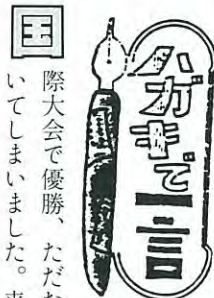 ハガキで一言
国
際大会で優勝、ただ
いてしまいました。